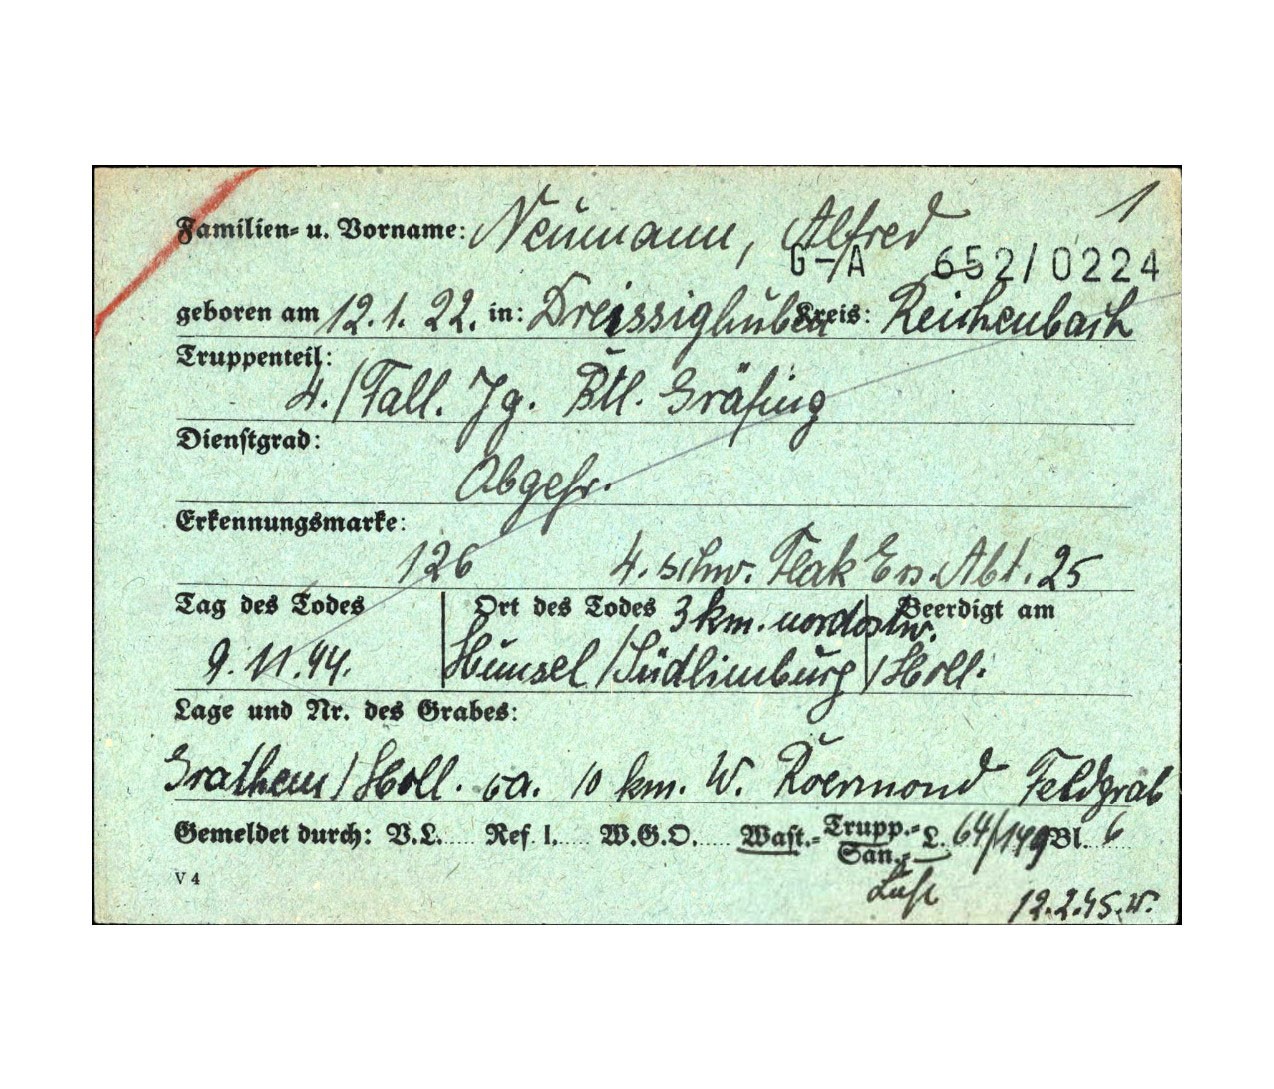 1
Familien- u. Vorname: Neumann, Alfred
G-A 652/0224
geboren am 12.1.22. in: Dreissighuben Kreis: Reichenbach
Truppenteil:
4./Fall. Jg. Btl. Gräfing
Dienstgrad:
Obgefr.
Erkennungsmarke:
126 4. schw. Flak Ers. Abt. 25
Tag des Todes Ort des Todes 3 km. nordostw. Beerdigt am
9.11.44. Hunsel /Südlimburg /Holl.
Lage und Nr. des Grabes:
Grathem/Holl. ca. 10 km. W. Roermond Feldgrab
Gemeldet durch: V.L. Ref. I. W.G.O. Wast.- Trupp.- L. 64/149 Bl. 6
San.-
Luft
V 4 12.2.45. W.